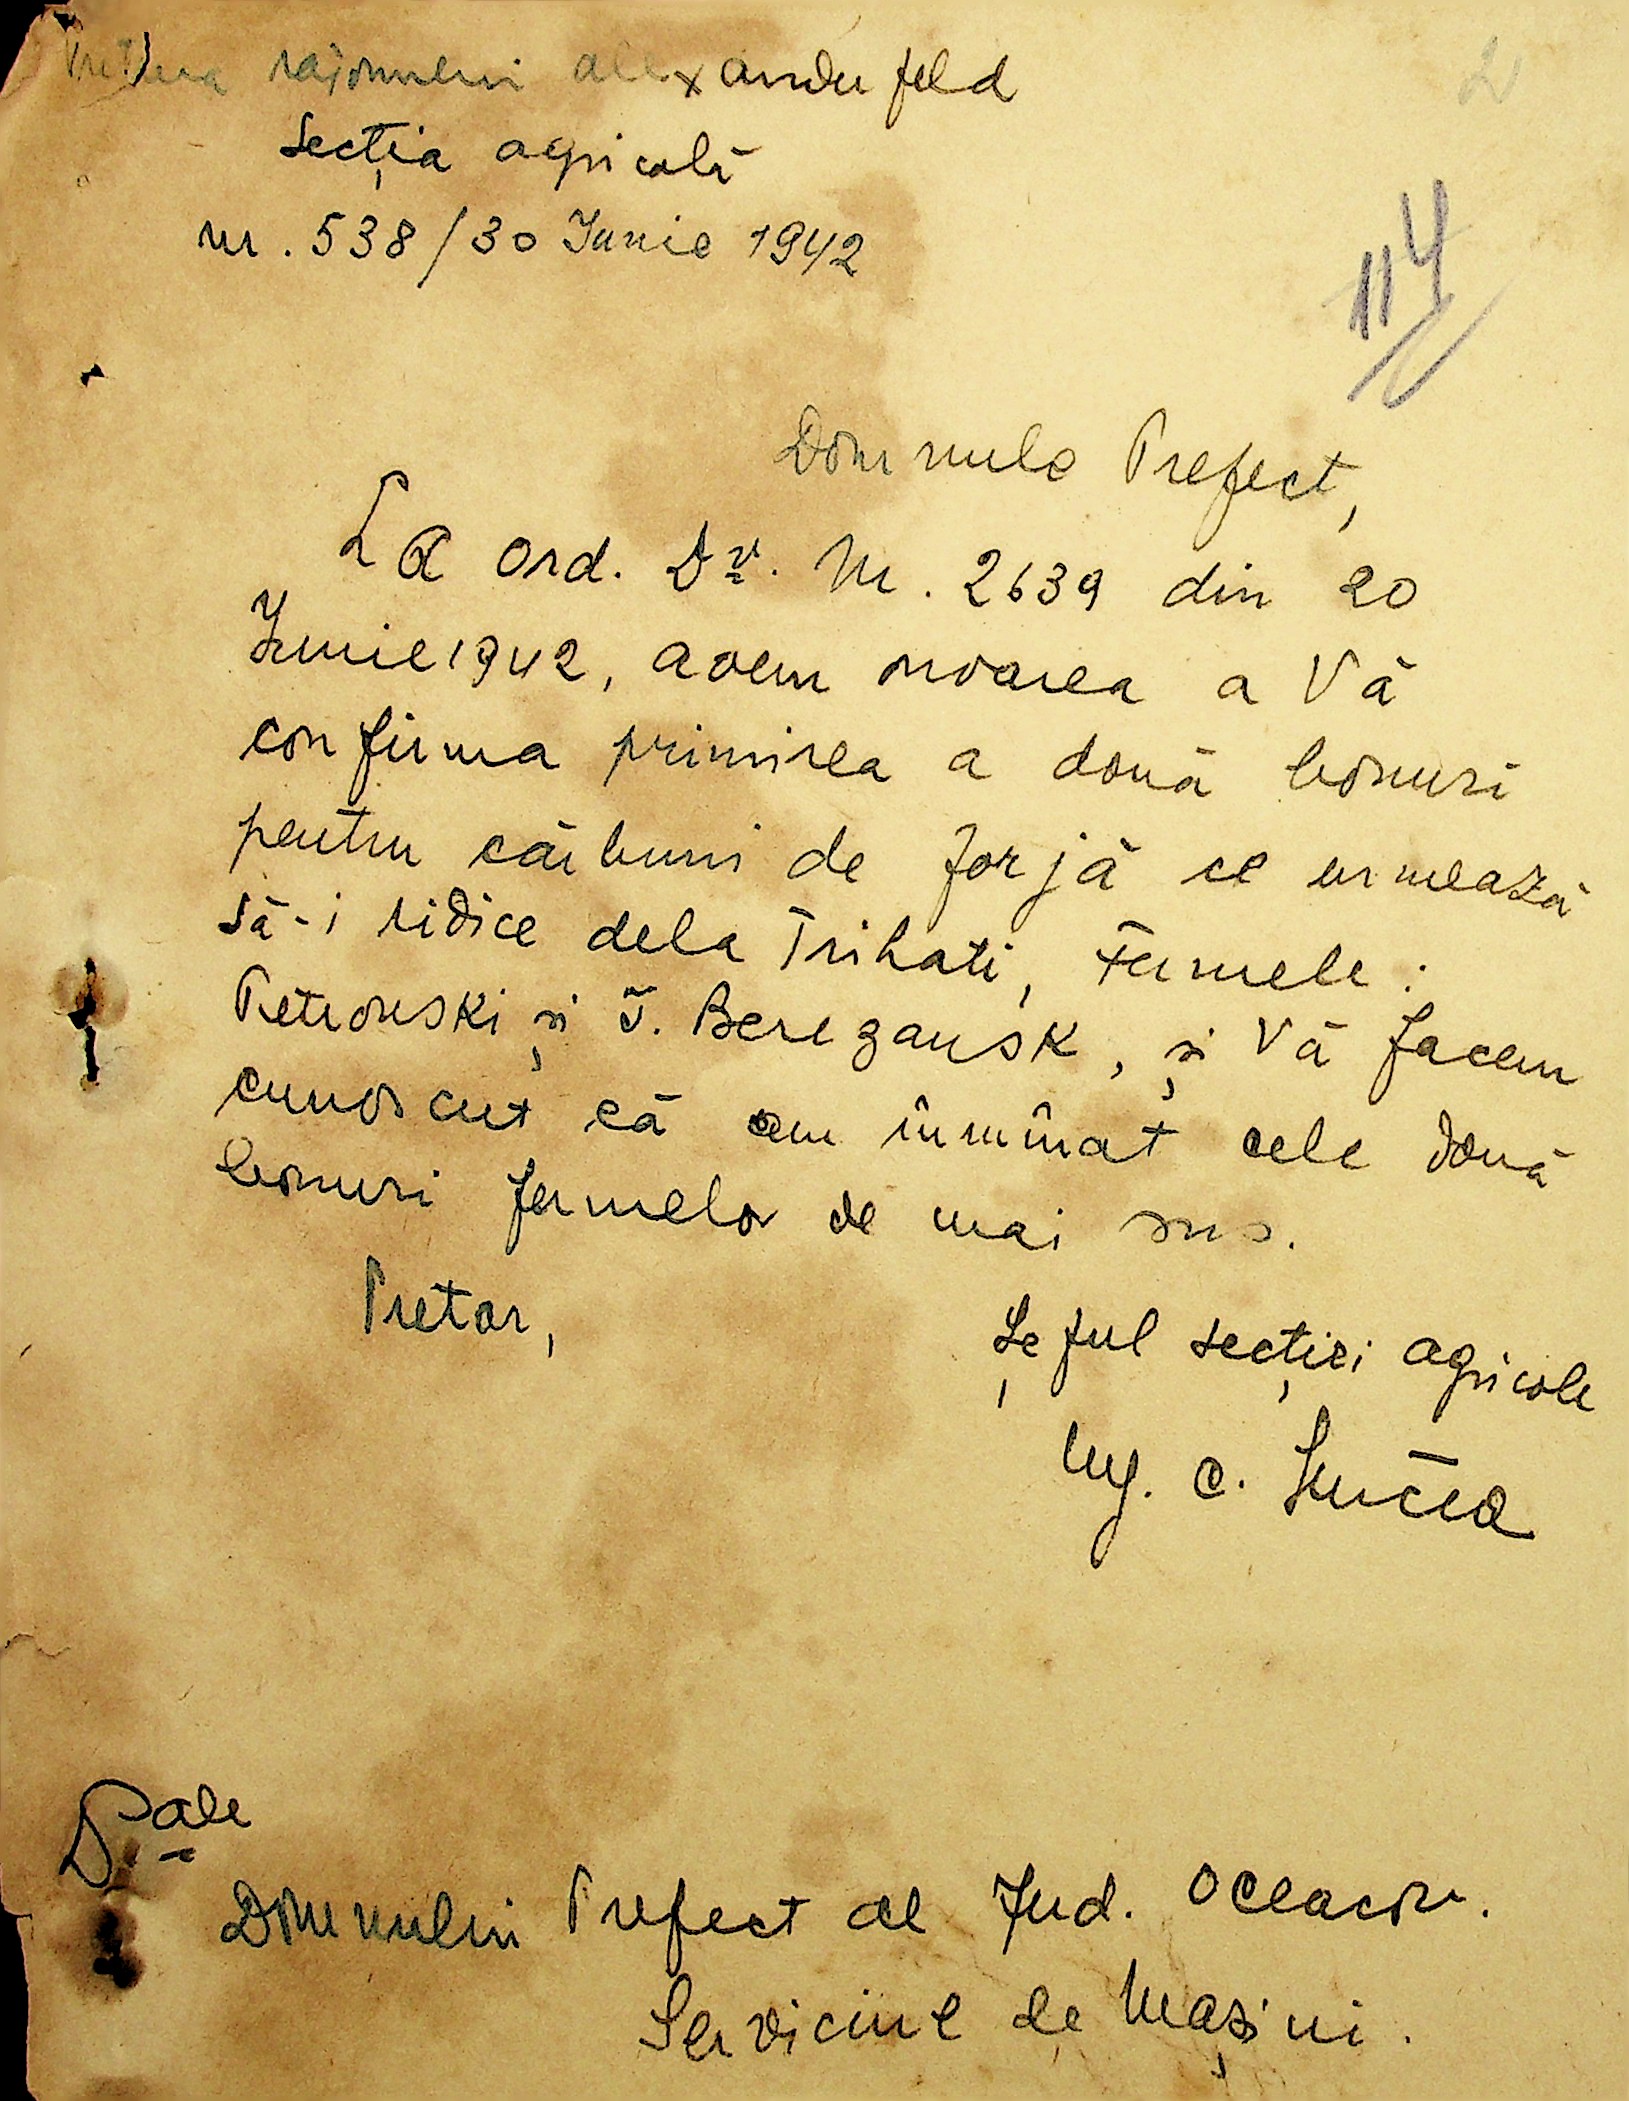 Pretura raionului alexanderfeld
2
Secția agricolă
nr. 538/30 Junie 1942
114
Domnule Prefect,
La ord. Dv. Nr. 2639 din 20
Junie 1942, avem onoarea a Vă
confirma primirea a două bonuri
pentru cărbuni de forjă ce urmează
să-i ridice dela Trihati, Fermele:
Petrovski și T. Berezansk, și Vă facem
cunoscut că am înmînat cele două
bonuri fermelor de mai sus.
Pretor,
Șeful secției agricole
Ing. C.
Dsale
Domnului Prefect al Jud. Oceacov.
Serviciul de Mașini.